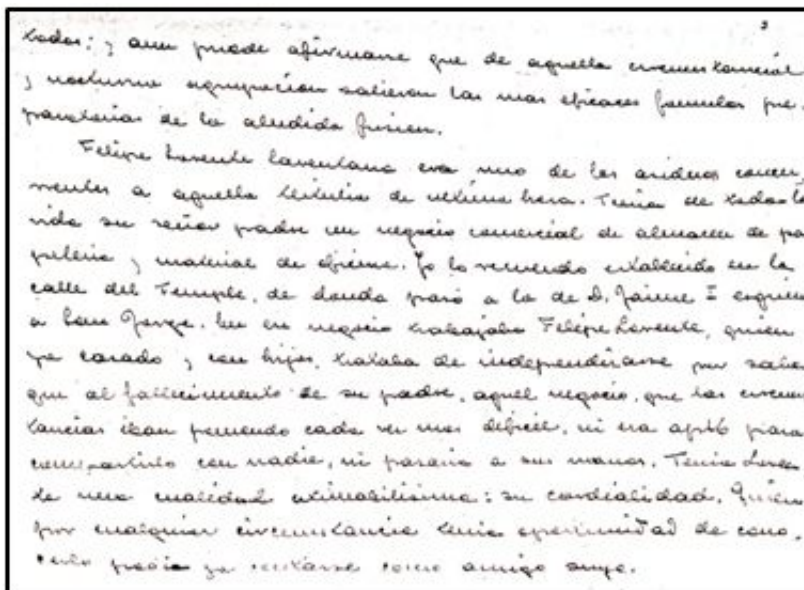 3
todos; y aun puede afirmarse que de aquella circunstancial
y nocturna agrupacion salieron las mas eficaces formulas pre-
paratorias de la aludida fusion.
Felipe Lorente Laventana era uno de los asiduos concu-
rrentes a aquella tertulia de ultima hora. Tenia de toda la
vida su señor padre un negocio comercial de almacen de pa
peleria y material de oficina. Yo lo recuerdo establecido en la
calle del Temple, de donde paso a la de D. Jaime I esquina
a San Jorge. En negocio trabajaba Felipe Lorente, quien
ya casado y con hijos, trataba de independizarse por saber
que al fallecimiento de su padre, aquel negocio, que las circuns
tancias iban poniendo cada vez mas dificil, ni era apto para
compartirlo con nadie, ni pasaria a sus manos. Tenia Loren
te una cualidad estimabilisima: su cordialidad. Quien
por cualquier circunstancia tenia oportunidad de cono-
cerlo podia ya contarse como amigo suyo.